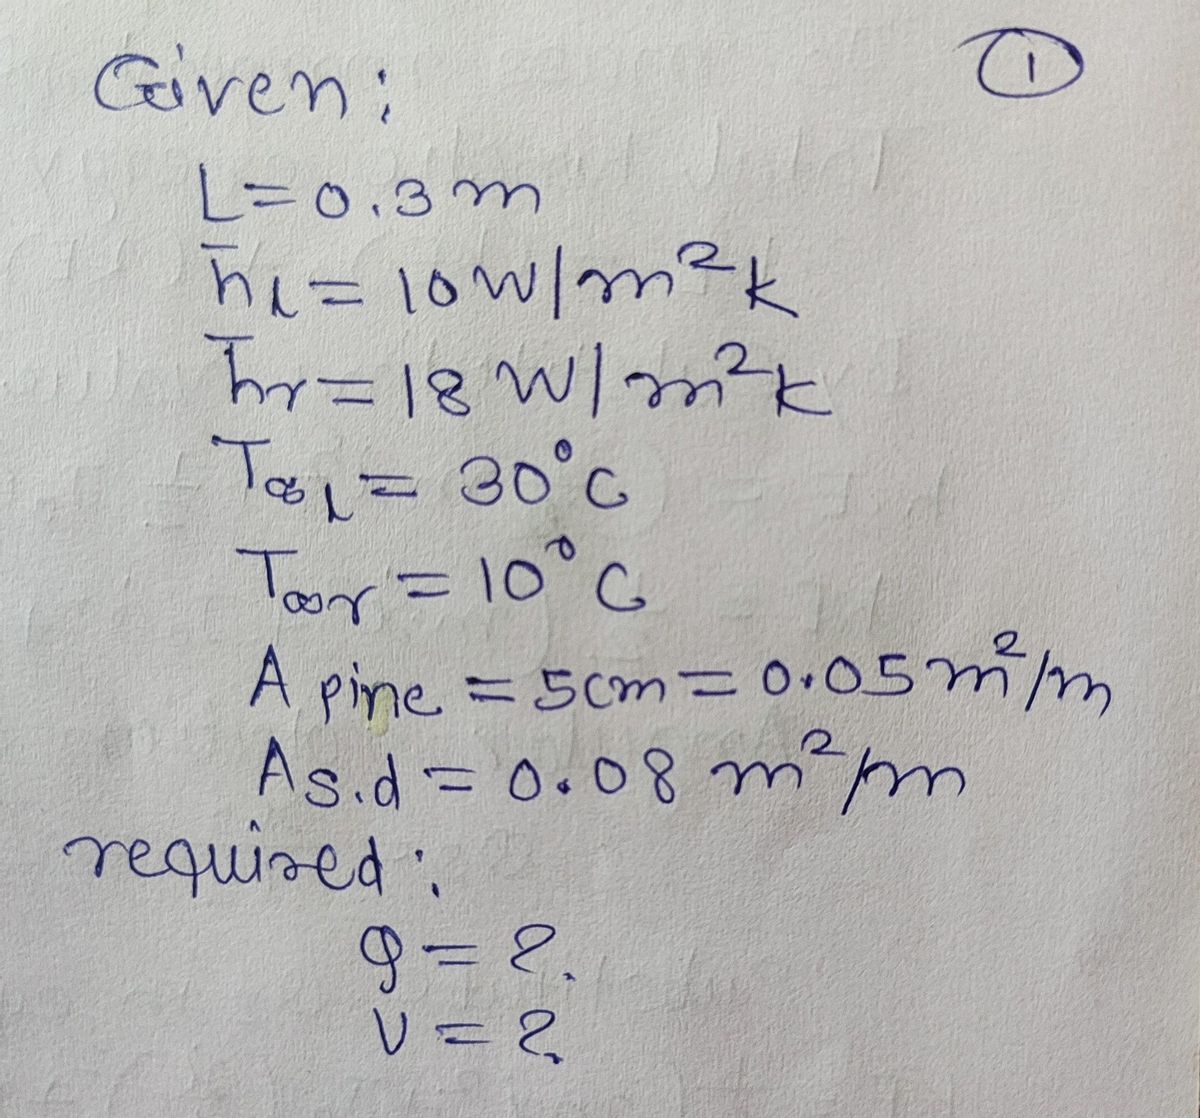 ①
Given:
L = 0.3 m
h̄l = 10 W/m²k
h̄r = 18 W/m²k
T∞l = 30°C
T∞r = 10°C
A pine = 5cm = 0.05 m²/m
As.d = 0.08 m²/m
required:
q = ?
U = ?